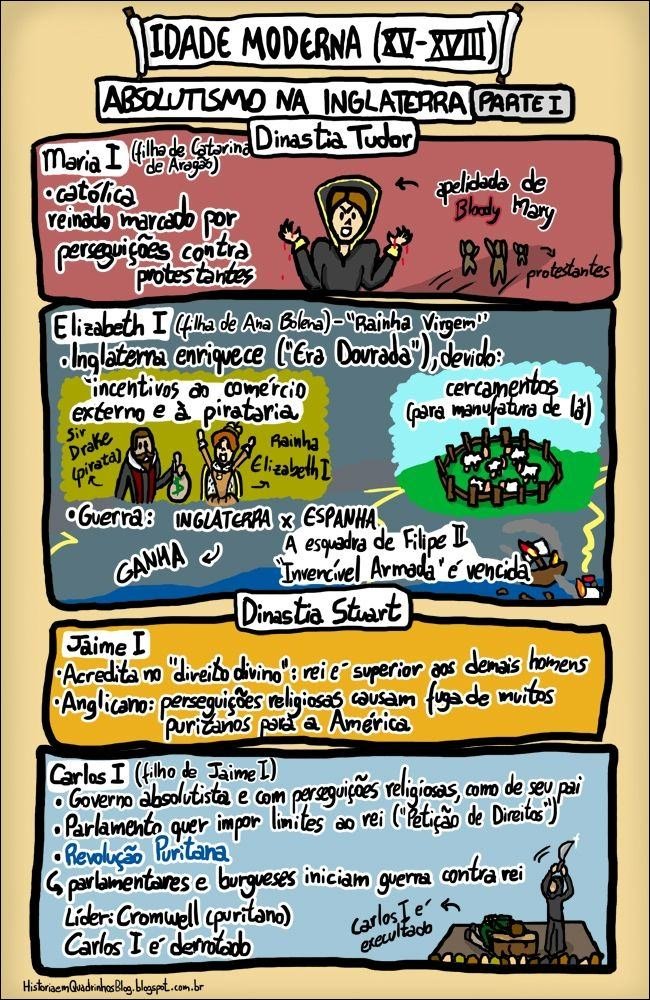 IDADE MODERNA (XV-XVIII)
ABSOLUTISMO NA INGLATERRA PARTE I
Dinastia Tudor
Maria I (filha de Catarina
de Aragão)
• católica
reinado marcado por
perseguições contra
protestantes
apelidada de
Bloody Mary
protestantes
Elizabeth I (filha de Ana Bolena) - "Rainha Virgem"
• Inglaterra enriquece ("Era Dourada"), devido:
incentivos ao comércio
externo e à pirataria
Sir
Drake
(pirata)
Rainha
Elizabeth I
cercamentos
(para manufatura de lã)
• Guerra: INGLATERRA x ESPANHA
GANHA
A esquadra de Filipe II
"Invencível Armada" é vencida
Dinastia Stuart
Jaime I
• Acredita no "direito divino": rei é superior aos demais homens
• Anglicano: perseguições religiosas causam fuga de muitos
puritanos para a América
Carlos I (filho de Jaime I)
• Governo absolutista e com perseguições religiosas, como de seu pai
• Parlamento quer impor limites ao rei ("Petição de Direitos")
• Revolução Puritana
↳ parlamentares e burgueses iniciam guerra contra rei
Líder: Cromwell (puritano)
Carlos I é derrotado
Carlos I é
executado
HistoriaemQuadrinhosBlog.blogspot.com.br